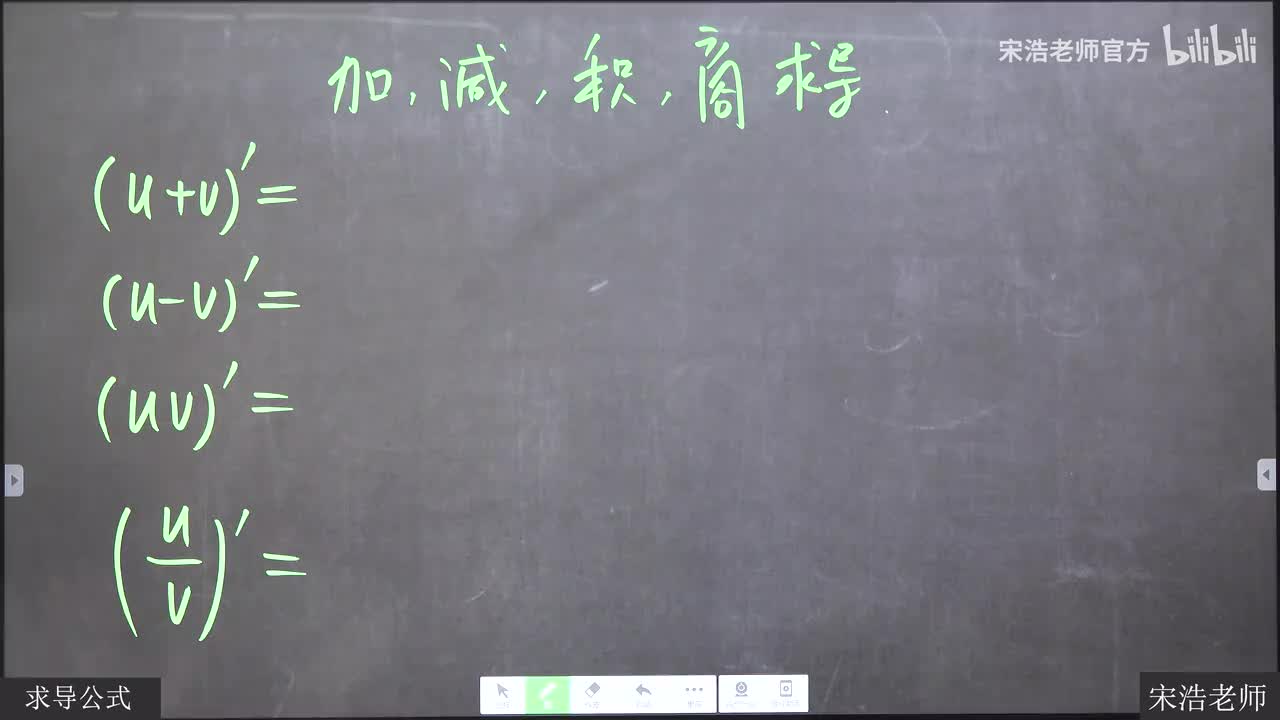 宋浩老师官方 bilibili
加,减,积,商求导.
(u+v)′=
(u-v)′=
(uv)′=
(u/v)′=
求导公式
宋浩老师